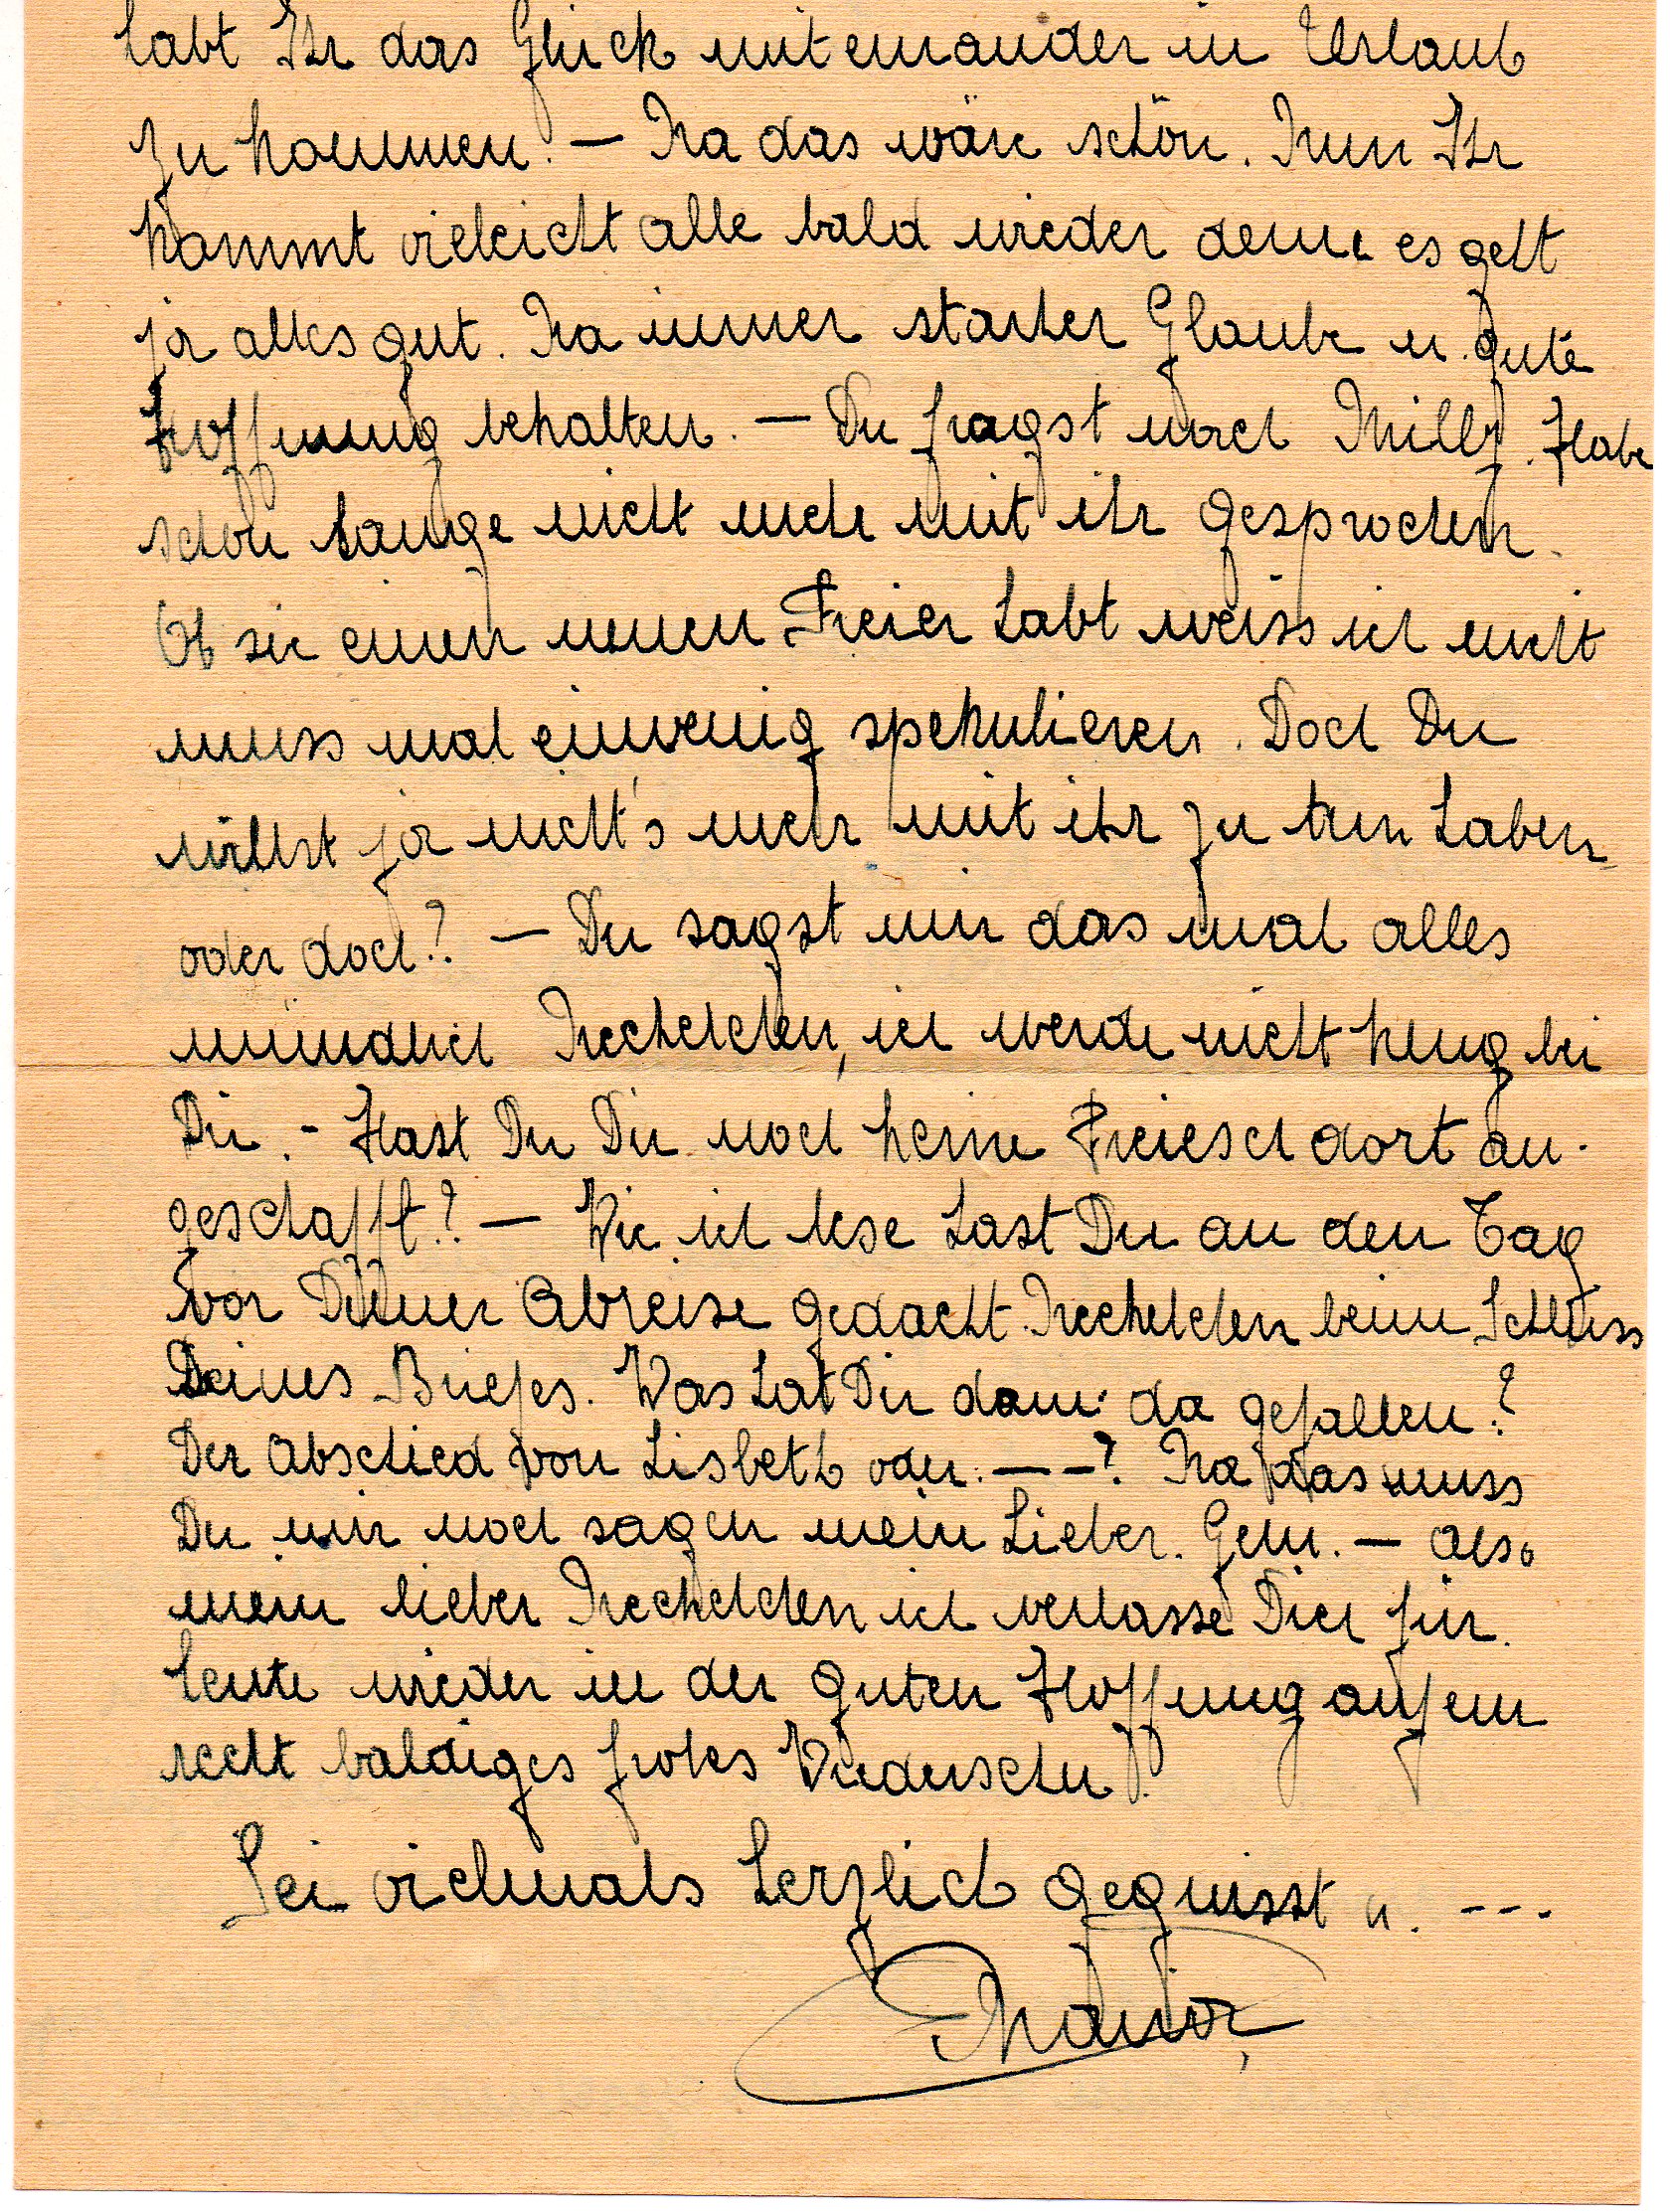 habt Ihr das Glück miteinander in Urlaub
zu kommen. — Na das wäre schön. Nun Ihr
kommt vieleicht alle bald wieder denn es geht
ja alles gut. Na immer starker Glaube u. gute
Hoffnung behalten. — Du fragst nach Milly. Habe
schon lange nicht mehr mit ihr gesprochen.
Ob sie einen neuen Freier habt weiss ich nicht
muss mal einwenig spekulieren. Doch Du
willst ja nicht's mehr mit ihr zu tun haben
oder doch? — Du sagst mir das mal alles
mündlich Neckelchen, ich werde nicht klug bei
Dir. - Hast Du Dir noch keine dort an-
geschafft? — Wie ich lese hast Du an den Tag
vor Deiner Abreise gedacht Neckelchen beim Schluss
Deines Briefes. Was hat Dir dann da gefallen?
Der Abschied von Lisbeth oder. — –? Na das muss
Du mir noch sagen mein Lieber. Gell. — Also
mein lieber Neckelchen ich verlasse Dich für
heute wieder in der guten Hoffnung auf ein
recht baldiges frohes Wiedersehn.
Sei vielmals herzlich gegrüsst u. ---